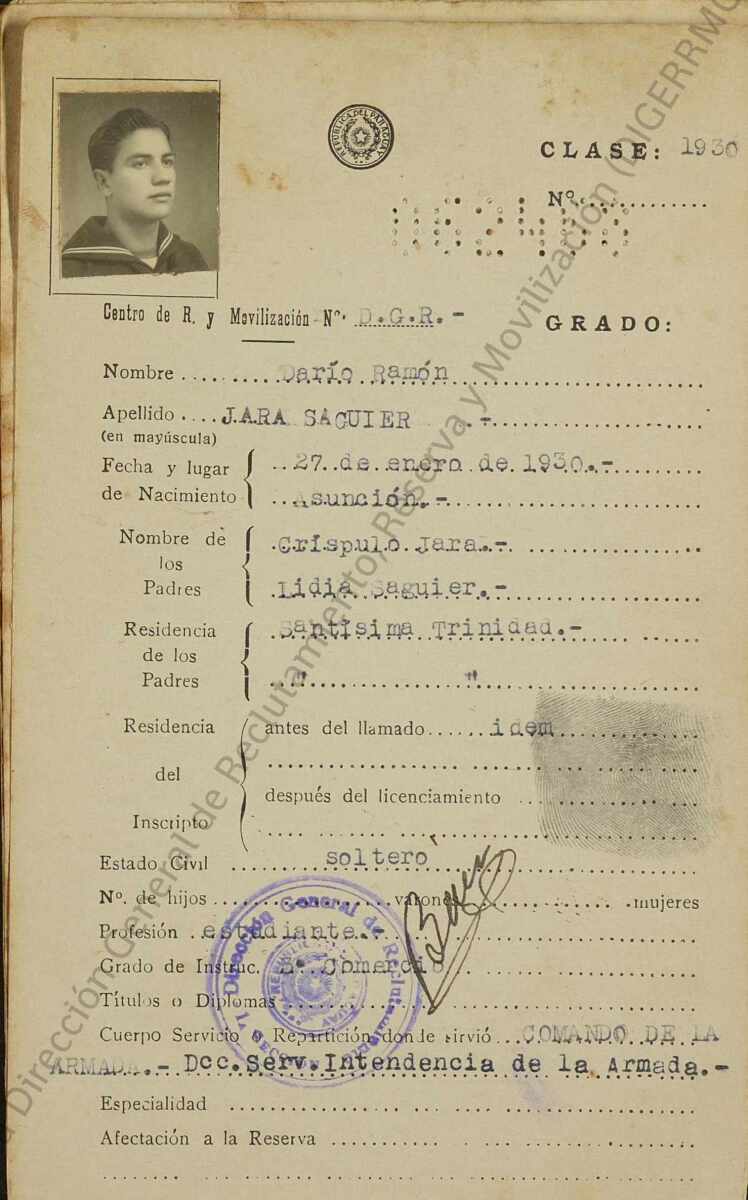 REPUBLICA DEL PARAGUAY
CLASE: 1930
Nº.............
Centro de R. y Movilización - Nº. D.G.R.-
GRADO:
Nombre ........ Darío Ramón
Apellido .... JARA SAGUIER .-
(en mayúscula)
Fecha y lugar de Nacimiento
27 de enero de 1930.-
Asunción.-
Nombre de los Padres
Críspulo Jara.-
Lidia Saguier.-
Residencia de los Padres
Santísima Trinidad.-
" "
Residencia del Inscripto
antes del llamado...... idem
después del licenciamiento
Estado Civil ........ soltero
Nº. de hijos ........ varones ........ mujeres
Profesión . estudiante.-
Grado de Instruc. Comercio
Títulos o Diplomas
Cuerpo Servicio o Repartición donde sirvió .. COMANDO DE LA
ARMADA.- Dcc.Serv.Intendencia de la Armada.-
Especialidad
Afectación a la Reserva
Dirección General de Reclutamiento
Dirección General de Reclutamiento, Reserva y Movilización (DIGERRMOV